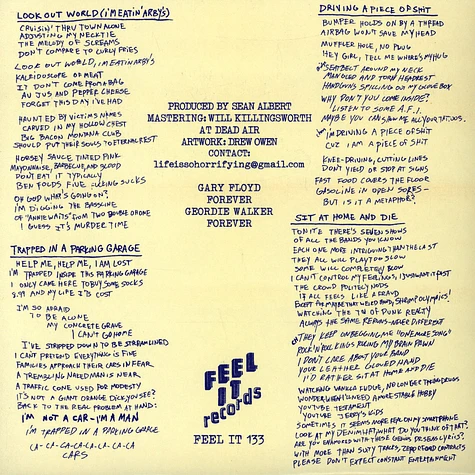 LOOK OUT WORLD (I'M EATIN' ARBY'S)
CRUISIN' THRU TOWN ALONE
ADJUSTING MY NECKTIE
THE MELODY OF SCREAMS
DON'T COMPARE TO CURLY FRIES
LOOK OUT WORLD, I'M EATIN ARBY'S
KALEIDOSCOPE OF MEAT
IT DON'T COME FROM A BAG
AU JUS AND PEPPER CHEESE
FORGET THIS DAY I'VE HAD
HAUNTED BY VICTIMS NAMES
CARVED IN MY HOLLOW CHEST
BIG BACON MONTANA CLUB
SHOULD PUT THEIR SOULS TO ETERNAL REST
HORSEY SAUCE TINTED PINK
MAYONNAISE, BARBECUE, AND BLOOD
DON'T EAT IT TYPICALLY
BEN FOLDS FIVE SUCKS
OH GOD WHAT'S GOING ON?
I'M DIGGING THE BASSLINE
OF "ANNIE WAITS" FROM TWO BOOTHS
I GUESS IT'S MURDER TIME
TRAPPED IN A PARKING GARAGE
HELP ME, HELP ME, I AM LOST
I'M TRAPPED INSIDE THIS PARKING GARAGE
I ONLY CAME HERE TO BUY SOME SOCKS
2.99 AND MY LIFE I'D COST
I'M SO AFRAID
TO BE ALONE
MY CONCRETE GRAVE
I CAN'T GO HOME
I'VE STRIPPED DOWN TO BE STREAMLINED
I CAN'T PRETEND EVERYTHING IS FINE
FAMILIES APPROACH THEIR CARS IN FEAR
A TREMBLING NAKED MAN IS NEAR
A TRAFFIC CONE USED FOR MODESTY
IT'S NOT A GIANT ORANGE DICK YOU SEE?
BACK TO THE REAL PROBLEM AT HAND:
I'M NOT A CAR - I'M A MAN
I'M TRAPPED IN A PARKING GARAGE
CA-CA-CA-CA-CA-CA-CA
CARS
PRODUCED BY SEAN ALBERT
MASTERING: WILL KILLINGSWORTH
AT DEAD AIR
ARTWORK: DREW OWEN
CONTACT:
lifeissohorrifying@gmail.com
GARY FLOYD
FOREVER
GEORDIE WALKER
FOREVER
FEEL
IT
records
FEEL IT 133
DRIVING A PIECE OF SHIT
BUMPER HOLDS ON BY A THREAD
AIRBAG WON'T SAVE MY HEAD
MUFFLER HOLE, NO PLUG
HEY GIRL, TELL ME WHERE'S MY HUG
SEATBELT AROUND MY NECK
MANGLED AND TORN HEADREST
HANDGUNS SPILLING OUT MY GLOVE BOX
WHY DON'T YOU COME INSIDE?
LISTEN TO SOME A.F.I.
MAYBE YOU CAN SHOW ME ALL YOUR TATTOOS.
I'M DRIVING A PIECE OF SHIT
CUZ I AM A PIECE OF SHIT
KNEE-DRIVING, CUTTING LINES
DON'T YIELD OR STOP AT SIGNS
FAST FOOD COVERS THE FLOOR
GASOLINE IN OPEN SORES-
BUT IS IT A METAPHOR?
SIT AT HOME AND DIE
TONITE THERE'S SEVEN SHOWS
OF ALL THE BANDS YOU KNOW
EACH ONE MORE INTRIGUING THAN THE LAST
THEY ALL WILL PLAY TOO SLOW
SOME WILL COMPLETELY BLOW
I CAN'T CONTROL MY FEELINGS, I JUST WANT IT FAST
THE CROWD POLITELY NODS
IT ALL FEELS LIKE A FRAUD
EXCEPT FOR MAYBE THAT WEIRD BAND, SHRIMP OLYMPICS!
WATCHING THE TV OF PUNK REALITY
ALWAYS THE SAME RERUNS - NEVER DIFFERENT
THEY KEEP ON BEGGING ME "ONE MORE SONG"
ROCK 'N' ROLL KINGS RUINING MY BRAIN DOWN
I DON'T CARE ABOUT YOUR BAND
YOUR LEATHER GLOVED HAND
I'D RATHER SIT AT HOME AND DIE
WATCHING VAMPED FUDGE, NO LONGER TAKING DRUGS
WONDER WHEN I NEED A MORE STABLE HOBBY
YOUTUBE TESTAMENT
YOUTUBE JERRY'S KIDS
SOMETIMES IT SEEMS MORE REAL ON MY SMARTPHONE
LOOK AT MY DENIM HAT, WHAT DO YOU THINK OF THAT?
ARE YOU ENAMORED WITH THESE GENIUS DR. SEUSS LYRICS?
WITH MORE THAN SIXTY TRACKS, ZERO RECORD CONTRACTS
PLEASE DON'T EXPECT CONSTANT ENTERTAINMENT